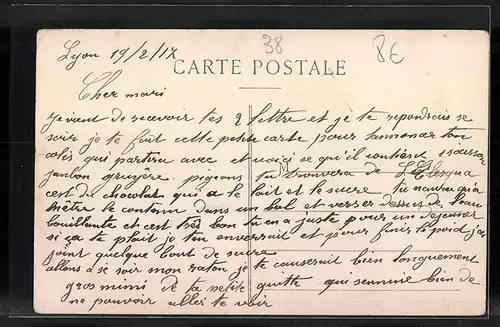 38
8E
Lyon 19/2/17
CARTE POSTALE
Cher mari
je vient de recevoir tes 2 lettre et je te repondrais se
soir je te fait cette petite carte pour tannoncer ton
colis qui partira avec et voici se qu'il contient 1 saucisson
janbon gruyère. pigeons tu trouvera de
cest du chocolat qui a le lait et le sucre tu naura qu'a
mètre le contenu dans un bol et verser dessus de l'eau
bouillante et cest très bon tu en a juste pour un dejeuner
si ça te plait je ten enverrait et pour finir le poid j'ai
joint quelque bout de sucre
allons a se soir mon raton je te causerait bien longuement
gros mimi de ta petite quitte qui sennuie bien de
ne pouvoir aller te voir